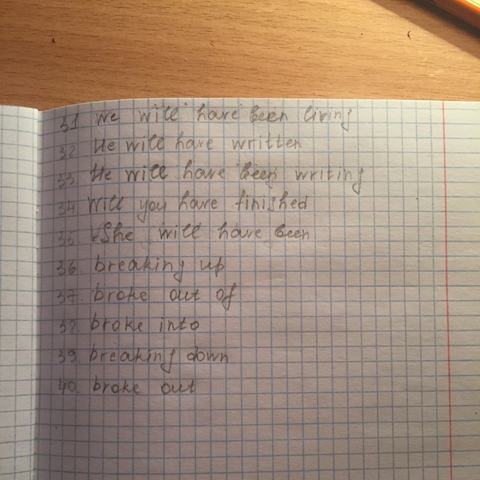 31 we will have been living
32 He will have written
33 He will have been writing
34 Will you have finished
35 She will have been
36. breaking up
37. broke out of
38 broke into
39 breaking down
40. broke out